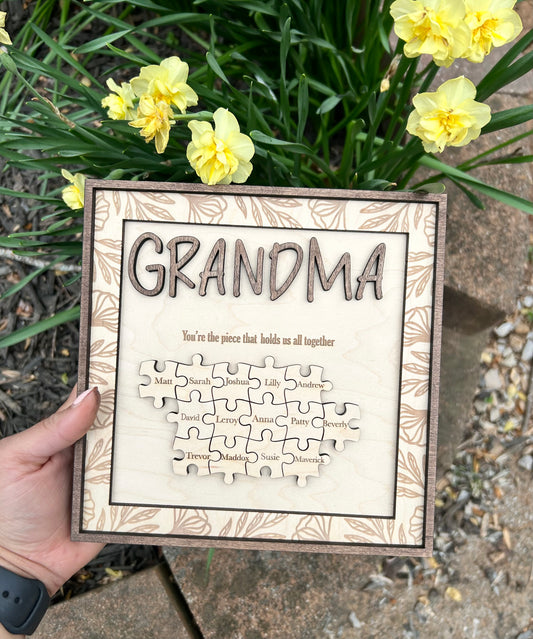 GRANDMA
You're the piece that holds us all together
Matt Sarah Joshua Lilly Andrew
David Leroy Anna Patty Beverly
Trevor Maddox Susie Maverick